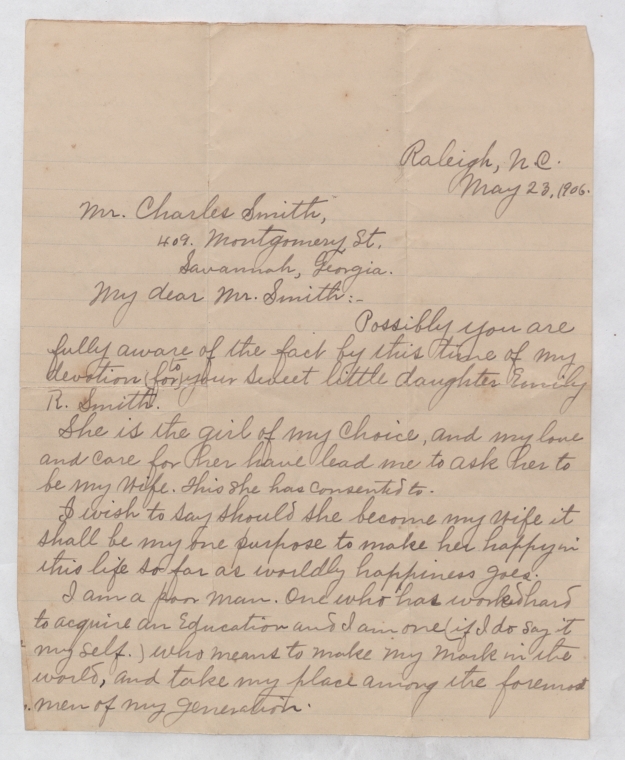 Raleigh, N.C.
May 23, 1906.
Mr. Charles Smith,
409. Montgomery St.
Savannah, Georgia.
My dear Mr. Smith:-
Possibly you are
fully aware of the fact by this time of my
devotion (for) to your sweet little daughter Emily
R. Smith.
She is the girl of my choice, and my love
and care for her have lead me to ask her to
be my wife. This she has consented to.
I wish to say should she become my wife it
shall be my one purpose to make her happy in
this life so far as worldly happiness goes.
I am a poor man. One who has worked hard
to acquire an Education and I am one (if I do say it
my self.) who means to make my mark in the
world, and take my place among the foremost
men of my generation.